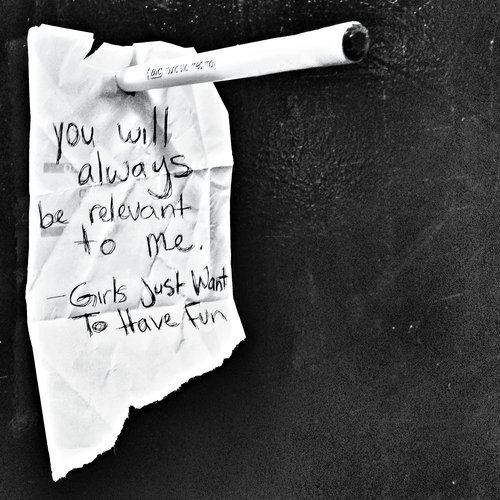 you will
always
be relevant
to me.
- Girls Just Want
To Have Fun